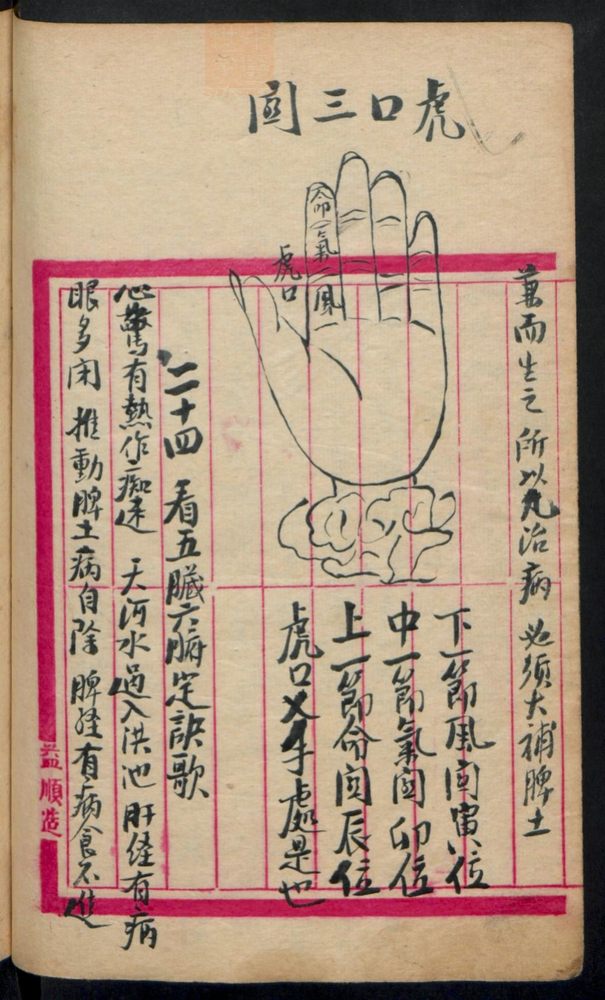 虎口三関
兼而生之 所以凢治病 必須大補脾土
命
氣
風
虎口
下一節風関寅位
中一節氣関卯位
上一節命関辰位
虎口乂手處是也
二十四 看五臓六腑定訣歌
心驚有熱作痴迷 天河水過入洪池 肝経有病
眼多闭 推動脾土病自除 脾経有病食不進
益順造